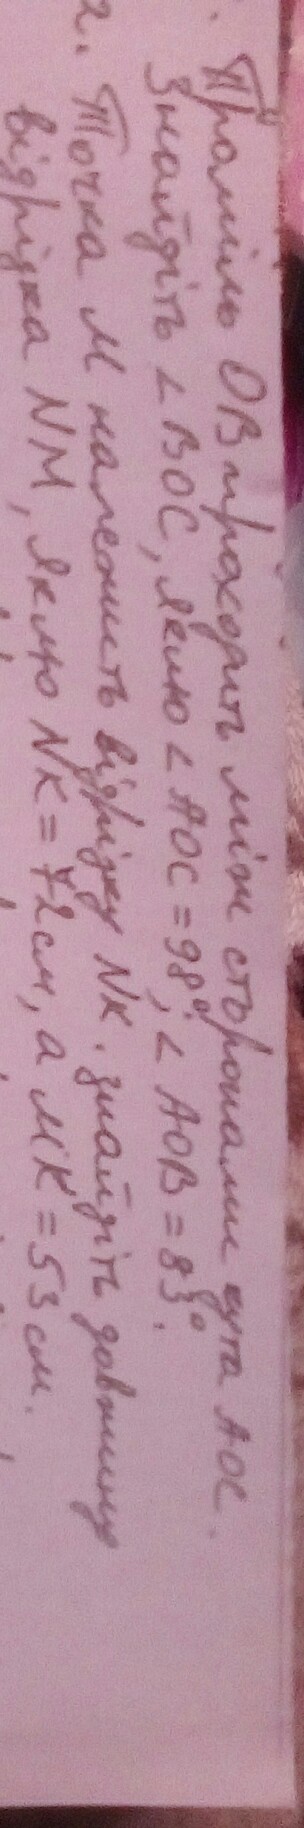 Промінь ОВ проходить між сторонами кута АОС.
Знайдіть ∠ВОС, якщо ∠АОС=98°, ∠АОВ=83°.
2. Точка М належить відрізку NK. Знайдіть довжину
відрізка NM, якщо NK=72см, а МК=53см.